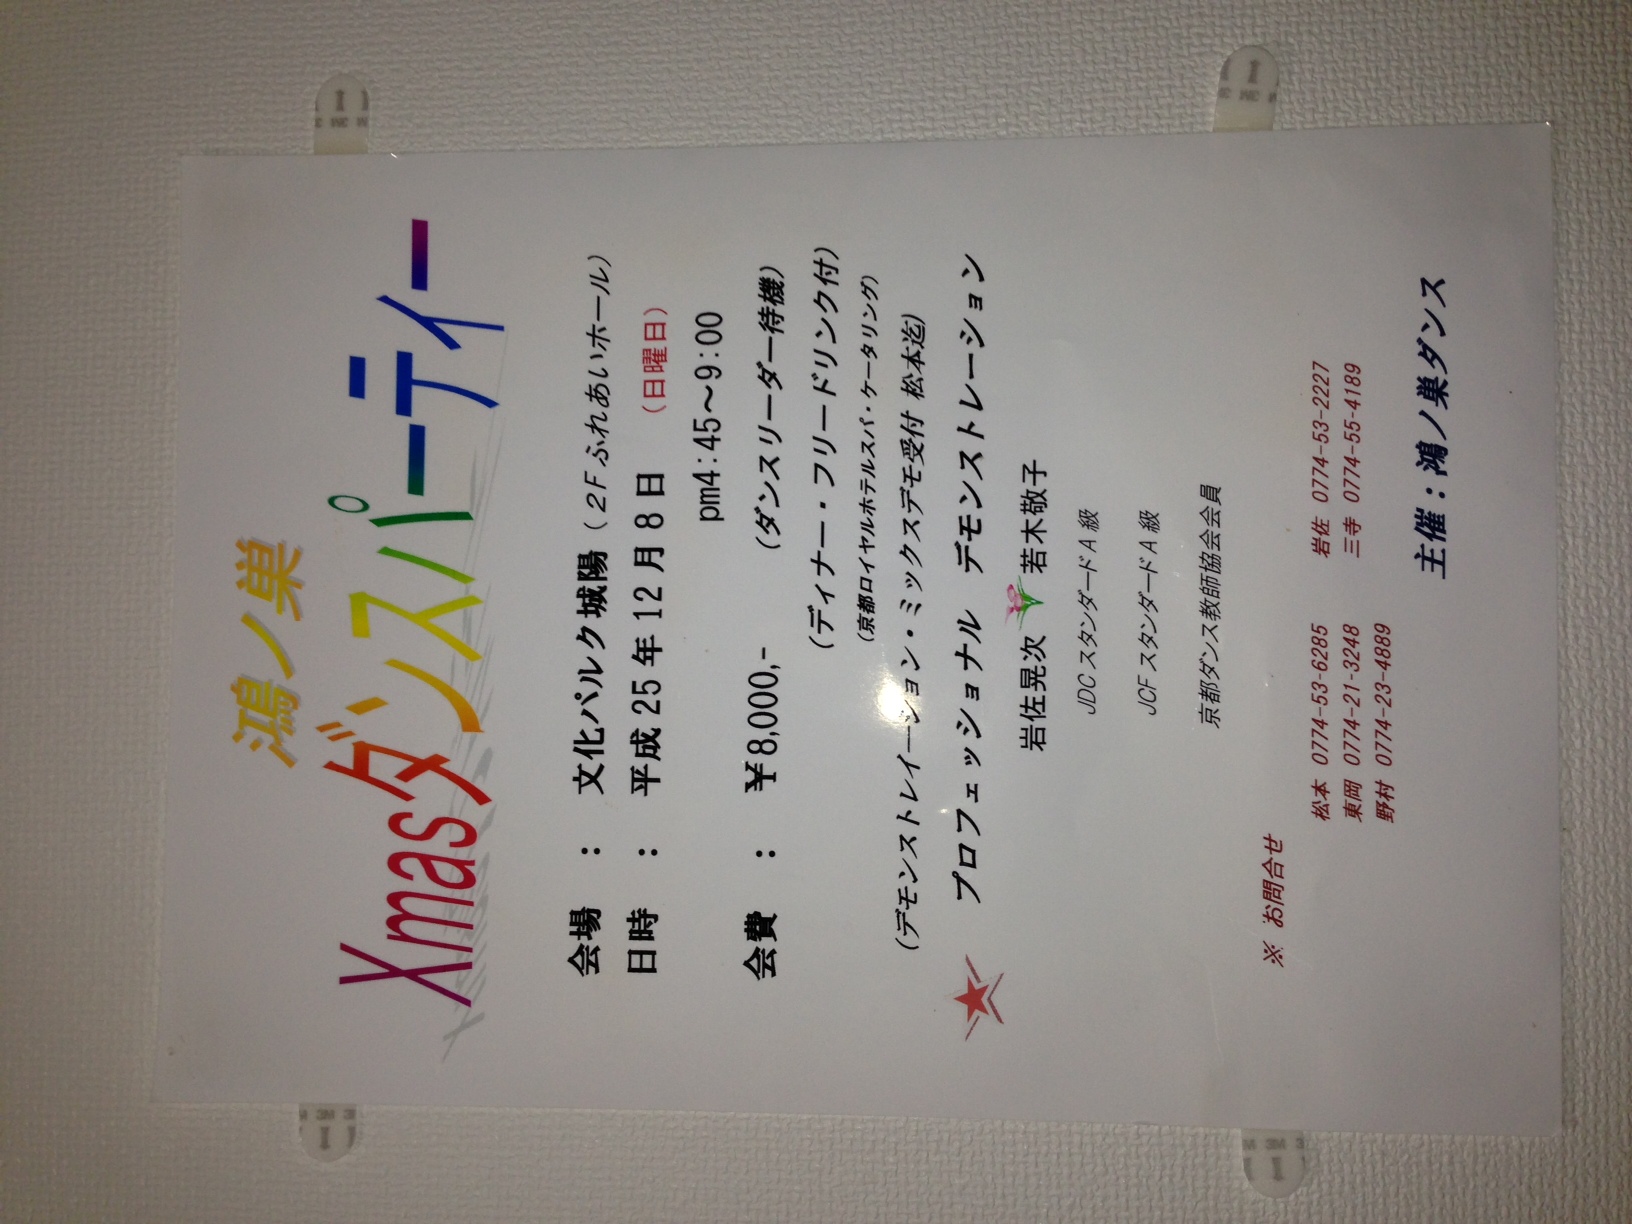 鴻ノ巣
Xmasダンスパーティー
会場 : 文化パルク城陽（２Fふれあいホール）
日時 : 平成25年12月8日 （日曜日）
pm4:45～9:00
会費 : ￥8,000,- （ダンスリーダー待機）
（ディナー・フリードリンク付）
（京都ロイヤルホテルスパ・ケータリング）
（デモンストレイーション・ミックスデモ受付 松本迄）
プロフェッショナル デモンストレーション
岩佐晃次 若木敬子
JDC スタンダード A 級
JCF スタンダード A 級
京都ダンス教師協会会員
※ お問合せ
松本 0774-53-6285 岩佐 0774-53-2227
東岡 0774-21-3248 三寺 0774-55-4189
野村 0774-23-4889
主催：鴻ノ巣ダンス